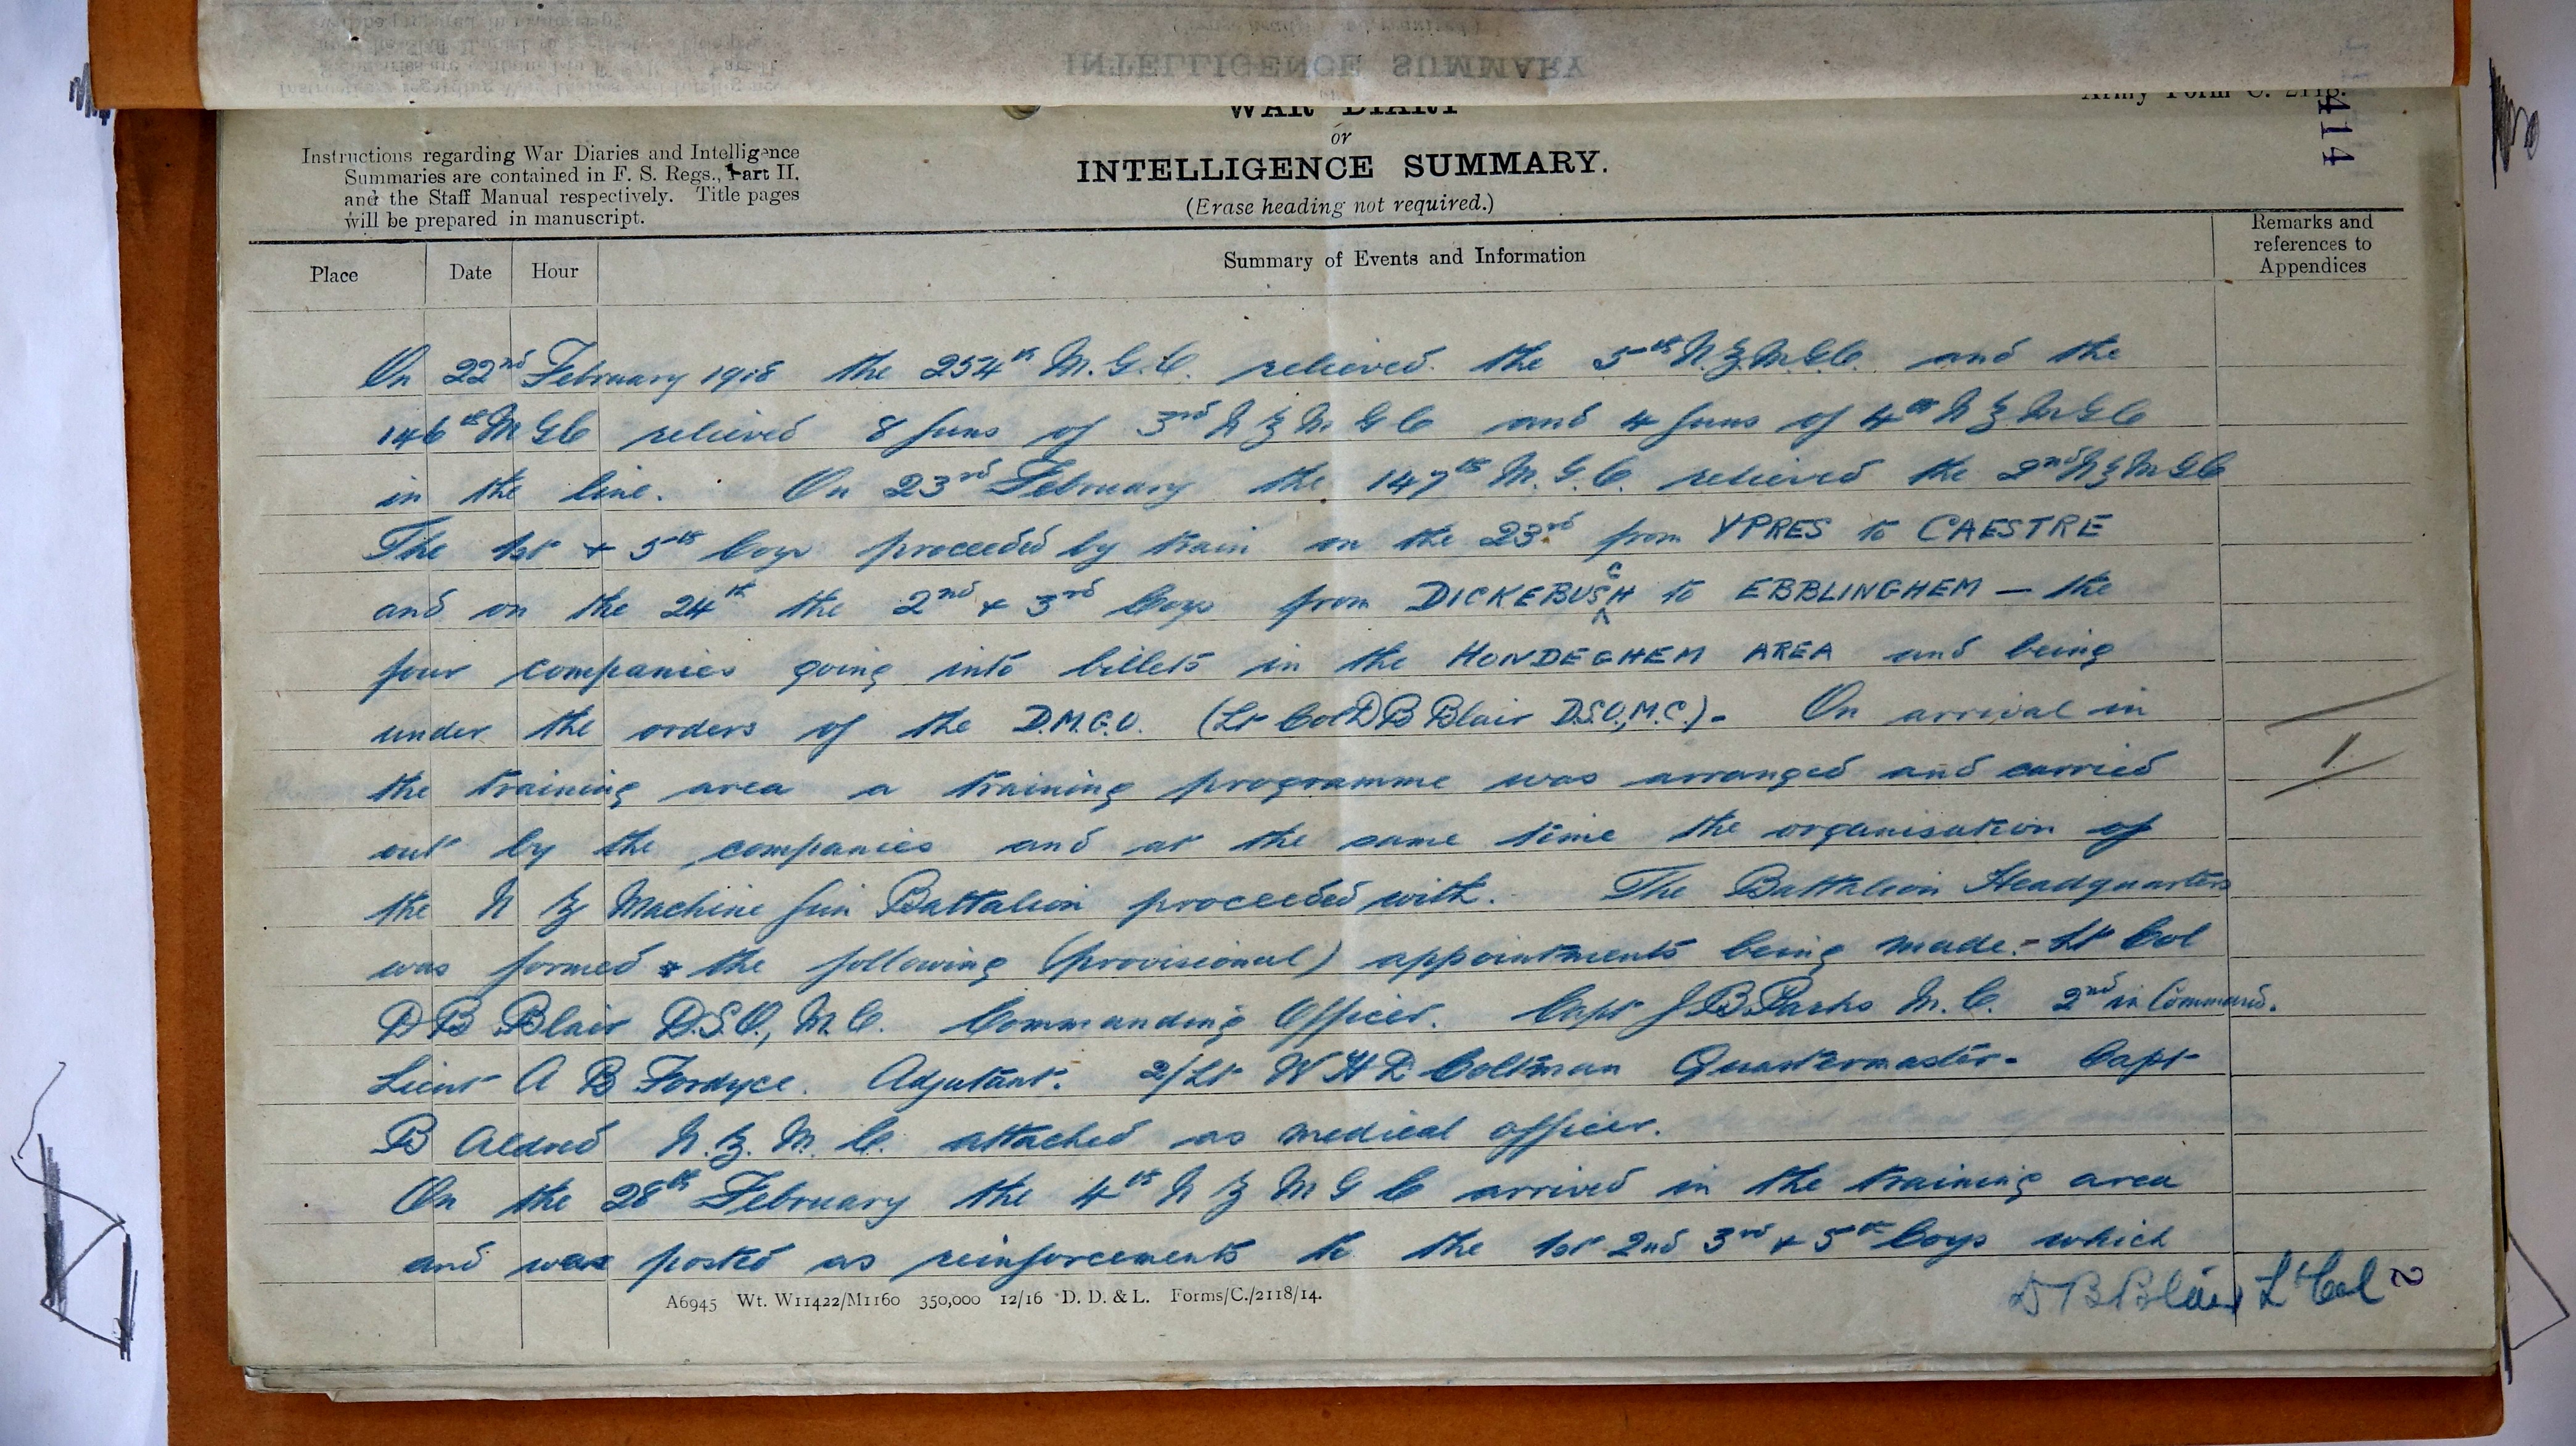 INTELLIGENCE SUMMARY
WAR DIARY
Army Form C. 2118.
414
or
INTELLIGENCE SUMMARY.
(Erase heading not required.)
Instructions regarding War Diaries and Intelligence
Summaries are contained in F. S. Regs., Part II.
and the Staff Manual respectively. Title pages
will be prepared in manuscript.
Place Date Hour Summary of Events and Information Remarks and
references to
Appendices
On 22nd February 1918 the 254th M.G.C. relieved the 5th N.Z.M.G.C. and the
146th M G C relieved 8 guns of 3rd N Z M G C and 4 guns of 4th N Z M G C
in the line. On 23rd February the 147th M.G.C. relieved the 2nd N Z M G C
The 1st + 5th Coys proceeded by train on the 23rd from YPRES to CAESTRE
and on the 24th the 2nd + 3rd Coys from DICKEBUSCH to EBBLINGHEM — the
four companies going into billets in the HONDEGHEM AREA and being
under the orders of the D.M.G.O. (Lt Col D B Blair D.S.O., M.C.) - On arrival in
the training area a training programme was arranged and carried
1.
out by the companies and at the same time the organisation of
the N Z Machine Gun Battalion proceeded with. The Battalion Headquarters
was formed & the following (provisional) appointments being made:- Lt Col
D B Blair D.S.O., M.C. Commanding Officer. Capt J B Parks M.C. 2nd in Command.
Lieut A B Fordyce. Adjutant. 2/Lt W H D Coltman Quartermaster - Capt
B Aldred N.Z.M.C. attached as medical officer.
On the 28th February the 4th N Z M G C arrived in the training area
and was posted as reinforcements to the 1st 2nd 3rd + 5th Coys which
D B Blair Lt Col
2
A6945 Wt. W11422/M1160 350,000 12/16 D. D. & L. Forms/C./2118/14.